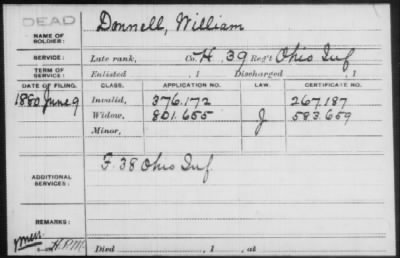 DEAD
NAME OF SOLDIER: Donnell, William
SERVICE: Late rank, Co. H 39 Reg't Ohio Inf
TERM OF SERVICE: Enlisted , 1 Discharged , 1
DATE OF FILING. CLASS. APPLICATION NO. LAW. CERTIFICATE NO.
1880 June 9 Invalid, 376.172 267.187
Widow, 801.655 J 583.659
Minor,
ADDITIONAL SERVICES: F. 38 Ohio Inf.
REMARKS:
Died , 1 , at